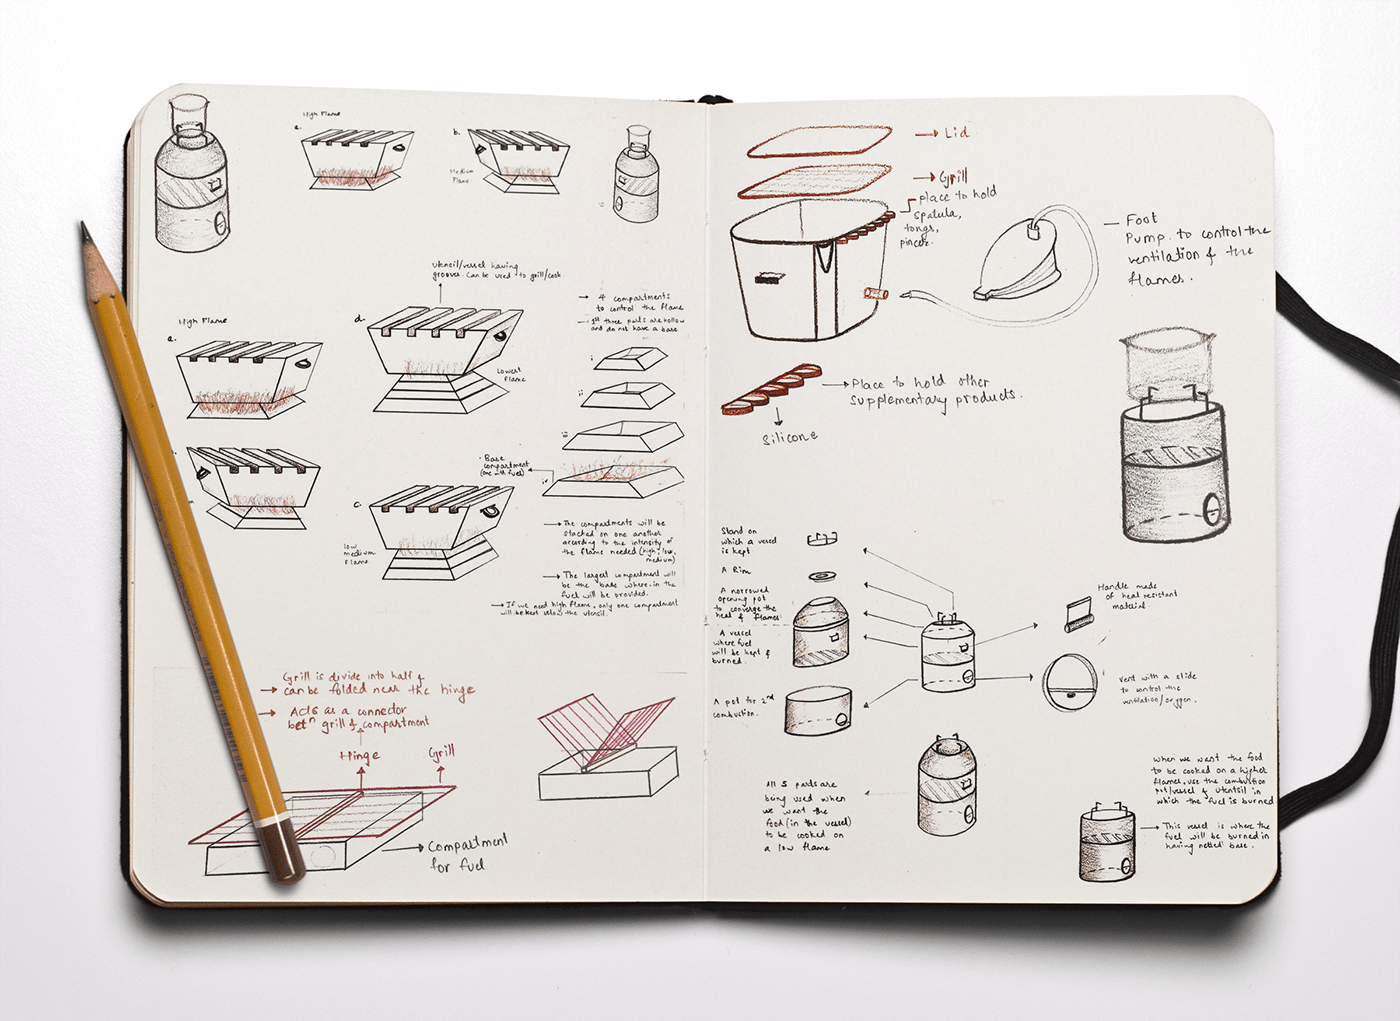 High Flame
a.
b.
Medium
Flame.
utencil/vessel having
grooves. Can be used to grill/cook.
→ 4 compartments
to control the flame
→ 1st three parts are hollow
and do not have a base
High Flame
a.
d.
Lowest
Flame
i
ii
iii
iv
Base
compartment
(one with fuel)
c.
low
medium
Flame.
→ The compartments will be
stacked on one another
according to the intensity of
the flame needed (high, low,
medium)
→ The largest compartment will
be the base where-in the
fuel will be provided.
→ If we need high flame, only one compartment
will be kept below the utensil.
Grill is divide into half &
→ can be folded near the hinge
→ Acts as a connector
betn grill & compartment
Hinge
Grill
→ Compartment
for fuel
→ Lid
→ Grill
place to hold
spatula,
tongs,
pincer.
— Foot
Pump. to control the
ventilation & the
flames.
→ Place to hold other
supplementary products.
Silicone
Stand on
which a vessel
is kept
A Rim
A norrowed
opening pot
to converge the
heat & flames
A vessel
where fuel
will be kept &
burned.
A pot for 2nd
combustion.
Handle made
of heat resistant
material.
vent with a slide
to control the
ventilation/oxygen.
All 5 parts are
being used when
we want the
food (in the vessel)
to be cooked on
a low flame
when we want the food
to be cooked on a higher
flames, use the combustion
pot/vessel & utentsil in
which the fuel is burned
→ This vessel is where the
fuel will be burned in
having netted base.